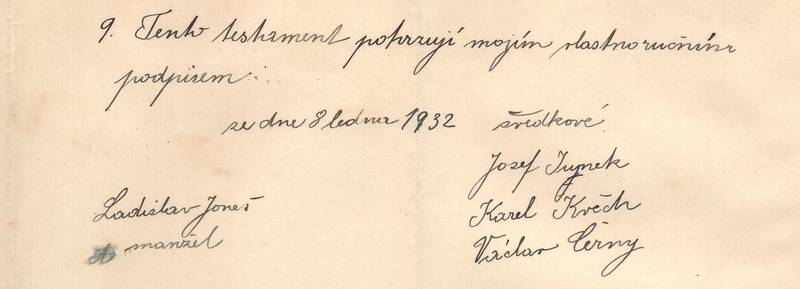 9. Tento testament potvrzuji mojím vlastnoručním
podpisem:
ze dne 8 ledna 1932 svědkové
Josef Tynek
Ladislav Joneš Karel Květh
manžel Václav Černy